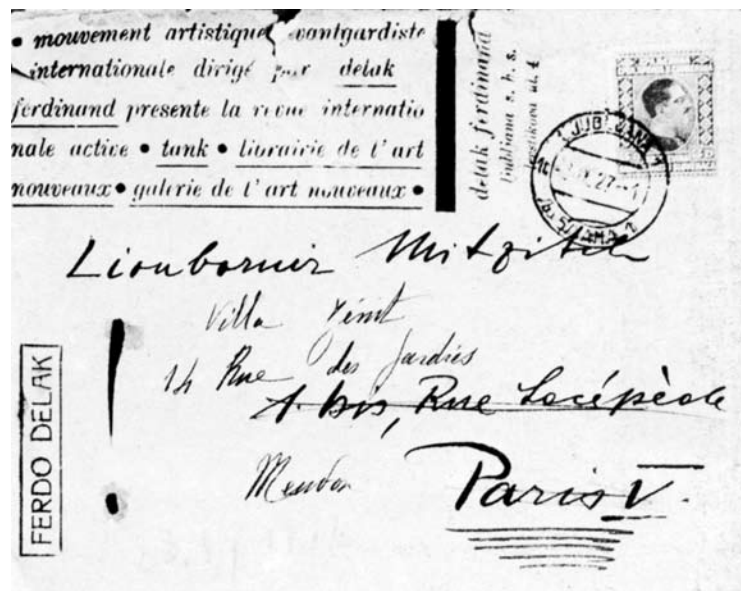 • mouvement artistique avantgardiste
internationale dirigé par delak
ferdinand presente la revue internatio
nale active • tank • librairie de l'art
nouveaux • galerie de l'art nouveaux •
delak ferdinand
ljubljana s. h. s.
ul. 4
LJUBLJANA 1
27-1
Lioubomir Mitzitch
Villa Zénit
14 Rue des Jardies
1 bis, Rue Lacépède
Meudon
Paris V.
FERDO DELAK